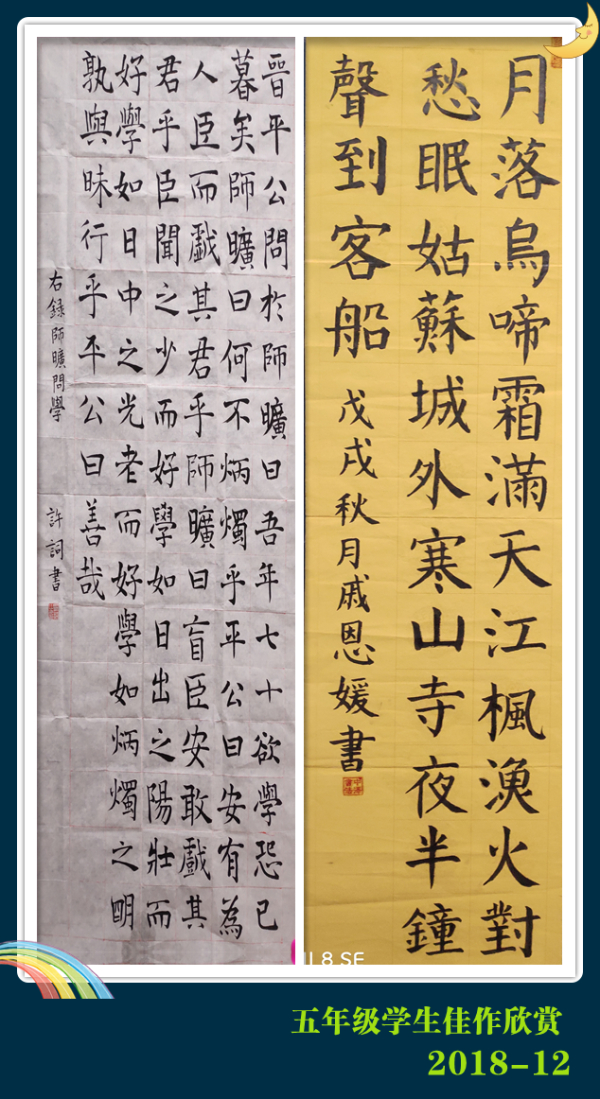 月落烏啼霜滿天江楓漁火對
愁眠姑蘇城外寒山寺夜半鐘
聲到客船 戊戌秋月戚恩媛書
晉平公問於師曠曰吾年七十欲學恐已
暮矣師曠曰何不炳燭乎平公曰安有為
人臣而戲其君乎師曠曰盲臣安敢戲其
君乎臣聞之少而好學如日出之陽壯而
好學如日中之光老而好學如炳燭之明
孰與昧行乎平公曰善哉
右錄師曠問學 許詞書
8 SE
五年级学生佳作欣赏
2018-12